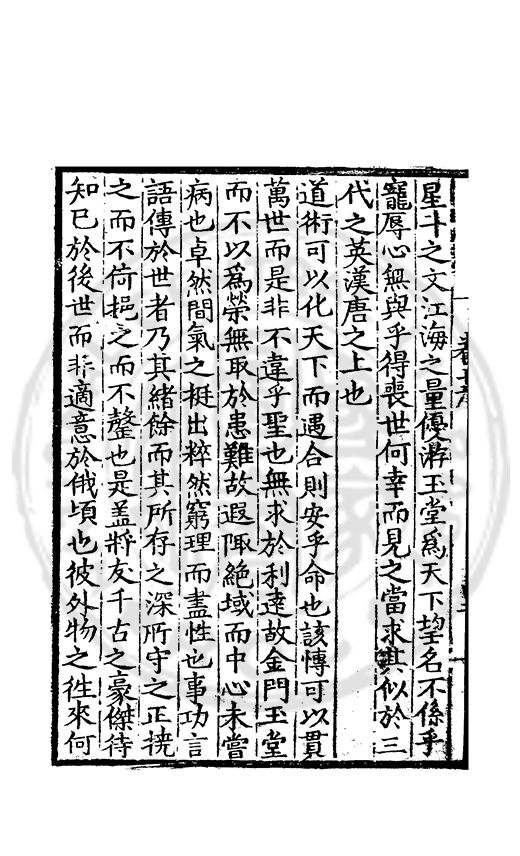 星斗之文江海之量優游玉堂爲天下望名不係乎
寵辱心無與乎得喪世何幸而見之當求其似於三
代之英漢唐之上也
道術可以化天下而遇合則安乎命也該慱可以貫
萬世而是非不違乎聖也無求於利達故金門玉堂
而不以爲榮無取於患難故遐陬絶域而中心未嘗
病也卓然間氣之挺出粹然窮理而盡性也事功言
語傳於世者乃其緒餘而其所存之深所守之正撓
之而不倚挹之而不罄也是盖將友千古之豪傑待
知已於後世而非適意於俄頃也彼外物之徃來何